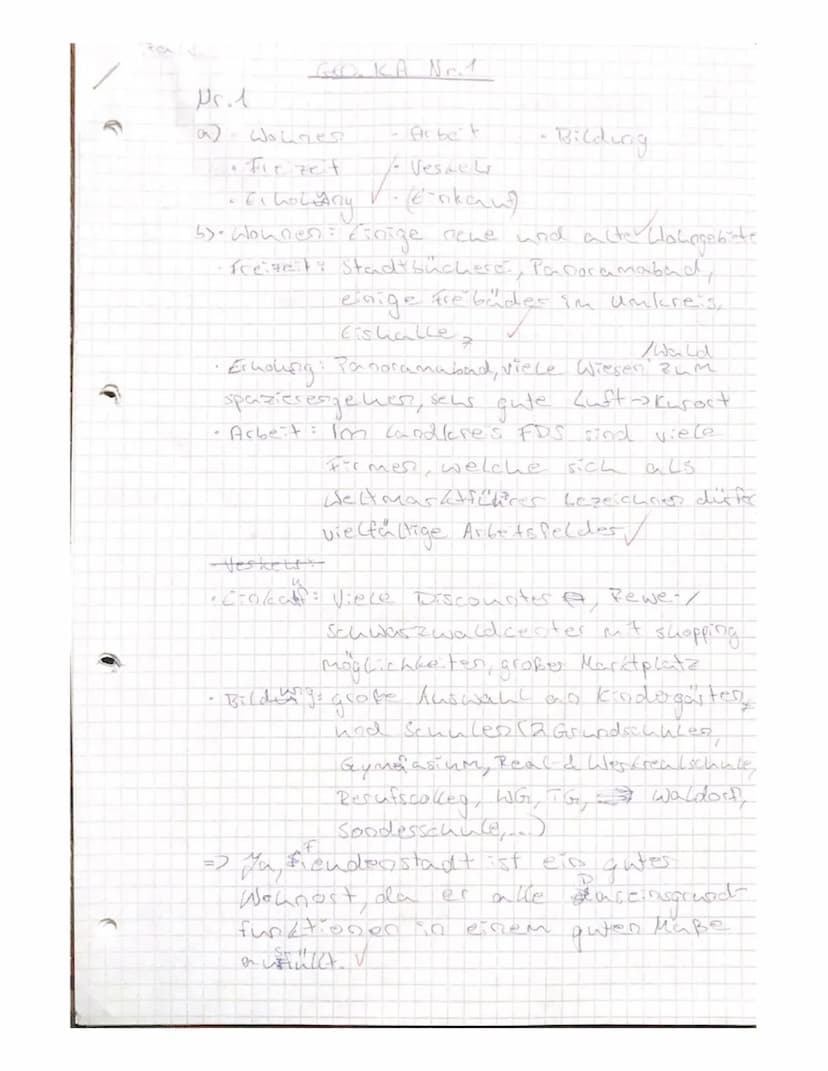 Geo. KA Nr. 1
Nr. 1
a) · Wohnen - Arbeit · Bildung
· Freizeit - Verkehr
· Erholung · (Einkauf)
b) · Wohnen: Einige neue und alte Wohngebiete
· Freizeit: Stadtbücherei, Panoramabad,
einige Freibäder im Umkreis,
Eishalle,
/Wald
· Erholung: Panoramabad, viele Wiesen zum
spazierengehen, sehr gute Luft → Kurort
· Arbeit: Im Landkreis FDS sind viele
Firmen, welche sich als
Weltmarktführer bezeichnen dürfen
vielfältige Arbeitsfelder
Verkehr:
· Einkauf: Viele Discounter, Rewe-/
Schwarzwaldcenter mit shopping
möglichkeiten, großer Marktplatz
· Bildung: große Auswahl an Kindergärten,
und Schulen (2 Grundschulen,
Gymnasium, Real- & Werkrealschule,
Berufscolleg, WG, TG, Waldorf,
Sonderschule,...)
=> Ja, Freudenstadt ist ein guter
Wohnort, da er alle Daseinsgrund-
funktionen in einem guten Maße